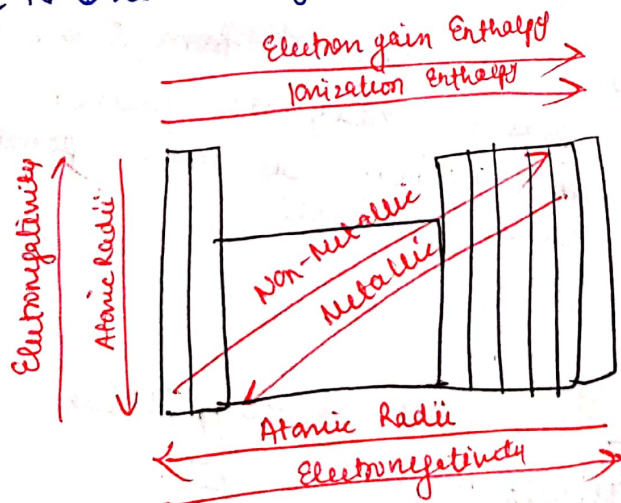 Electron gain Enthalpy
Ionization Enthalpy
Electronegativity
Atomic Radii
Non-Metallic
Metallic
Atomic Radii
Electronegativity